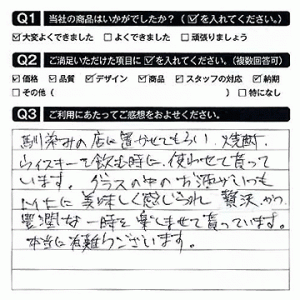 Q1 当社の商品はいかがでしたか？（☑を入れてください。）
☑大変よくできました □よくできました □頑張りましょう
Q2 ご満足いただけた項目に☑を入れてください。（複数回答可）
☑価格 ☑品質 ☑デザイン ☑商品 ☑スタッフの対応 ☑納期
□その他（ ） □特になし
Q3 ご利用にあたってご感想をおよせください。
馴染みの店に置かせてもらい、焼酎、
ウィスキーを飲む時に、使わせて貰って
います。グラスの中のお酒がいつも
以上に美味しく感じられ、贅沢、かつ
豊潤な一時を楽しませて貰っています。
本当に有難うございます。